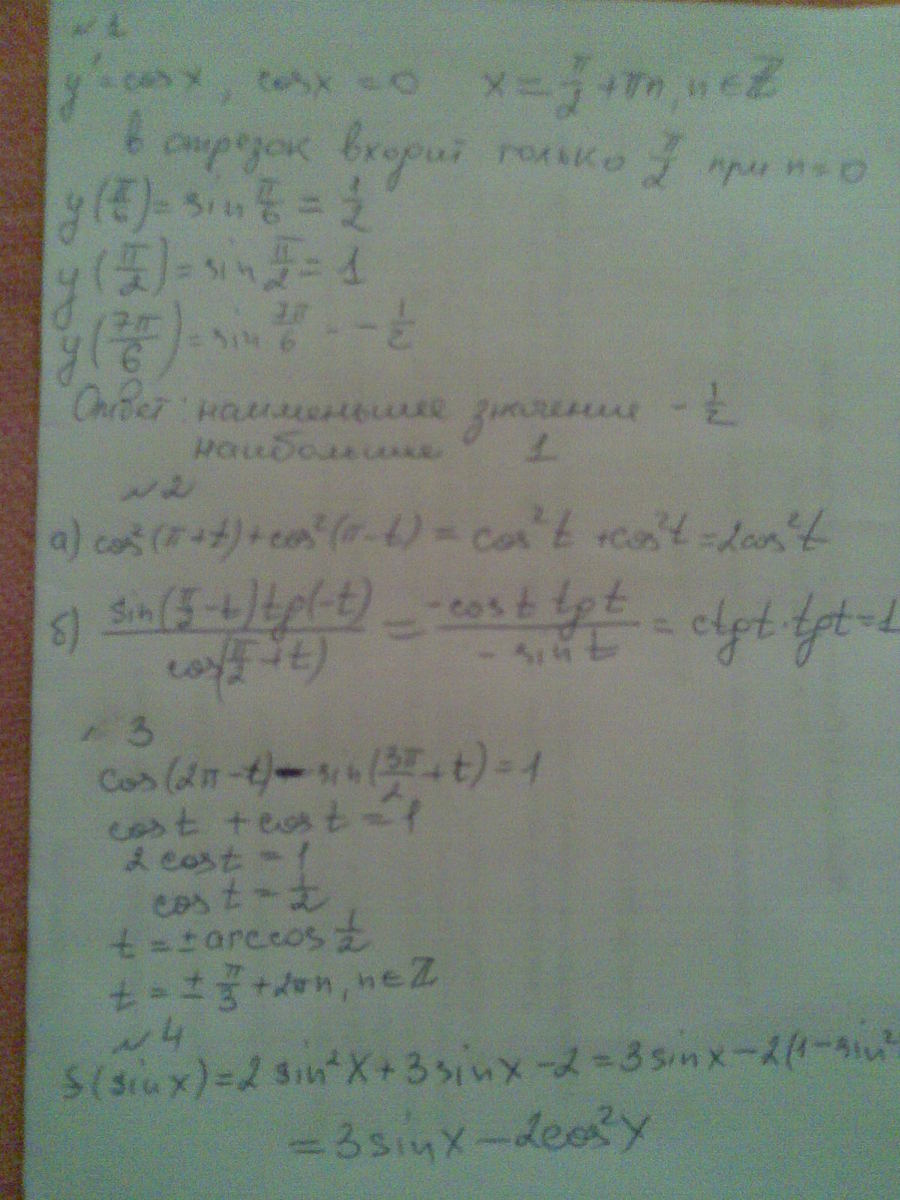 № 1
y' = cos x, cos x = 0 x = π/2 + πn, n ∈ Z
в отрезок входит только π/2 при n = 0
y(π/6) = sin π/6 = 1/2
y(π/2) = sin π/2 = 1
y(7π/6) = sin 7π/6 = -1/2
Ответ: наименьшее значение -1/2
наибольшее 1
№ 2
а) cos²(π+t)+cos²(π-t) = cos²t + cos²t = 2cos²t
б) sin(π/2 - t) tg(-t) / cos(π/2 + t) = -cos t tg t / - sin t = ctg t · tg t = 1
3
cos(2π-t) - sin(3π/2 + t) = 1
cos t + cos t = 1
2 cos t = 1
cos t = 1/2
t = ± arccos 1/2
t = ± π/3 + 2πn, n ∈ Z
№ 4
f(sin x) = 2 sin²x + 3 sin x - 2 = 3 sin x - 2(1 - sin²
= 3 sin x - 2cos²x